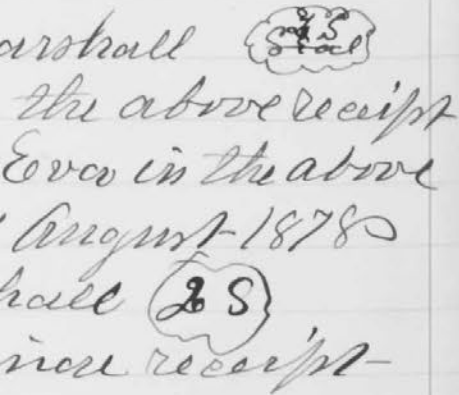 arshall LS Seal
the above receipt
Eva in the above
August 1878
hall LS
inal receipt